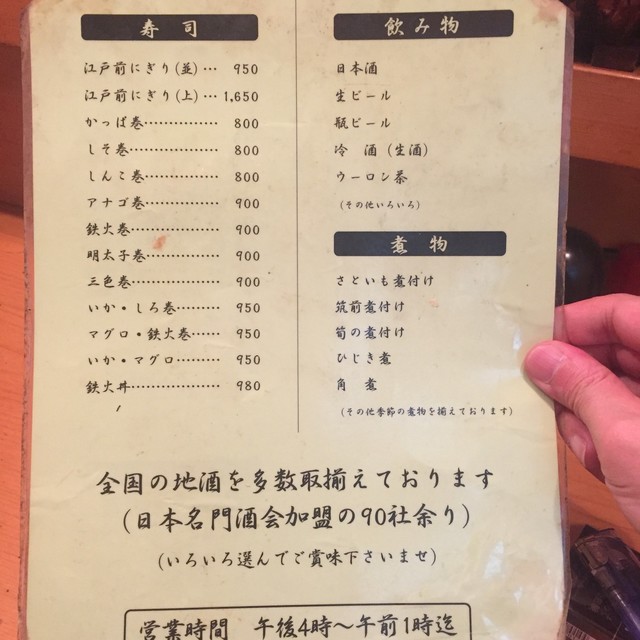 寿司
江戸前にぎり(並)… 950
江戸前にぎり(上)… 1,650
かっぱ巻…………… 800
しそ巻…………… 800
しんこ巻…………… 800
アナゴ巻…………… 900
鉄火巻…………… 900
明太子巻…………… 900
三色巻…………… 900
いか・しろ巻…… 950
マグロ・鉄火巻…… 950
いか・マグロ…… 950
鉄火丼…………… 980
飲み物
日本酒
生ビール
瓶ビール
冷 酒(生酒)
ウーロン茶
(その他いろいろ)
煮物
さといも煮付け
筑前煮付け
筍の煮付け
ひじき煮
角 煮
(その他季節の煮物を揃えております)
全国の地酒を多数取揃えております
(日本名門酒会加盟の90社余り)
(いろいろ選んでご賞味下さいませ)
営業時間 午後4時〜午前1時迄